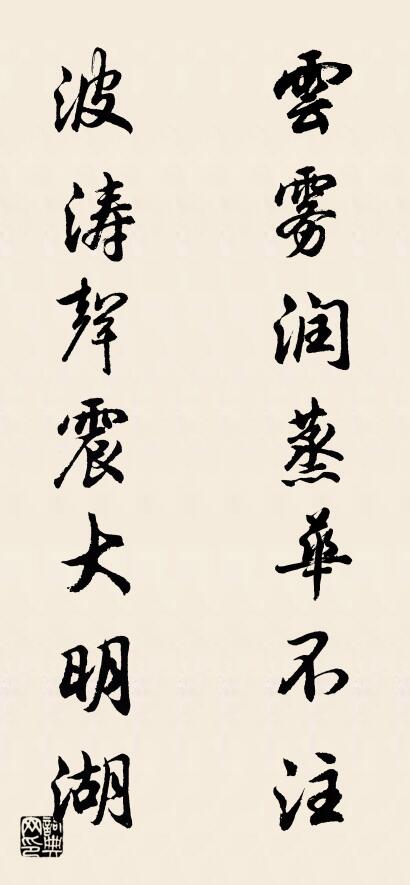 雲雾润蒸華不注
波涛聲震大明湖